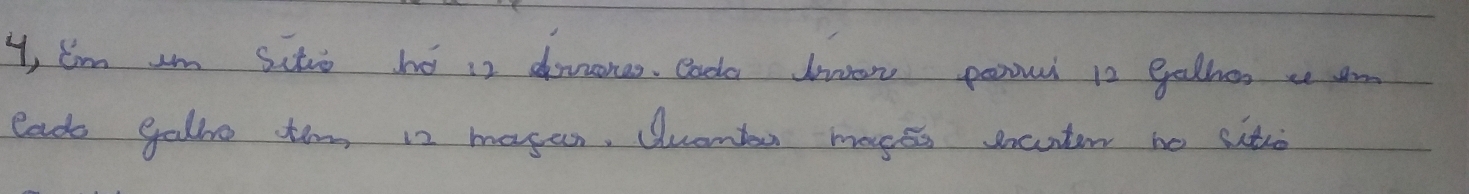 4, Em um sítio há 12 árvores. Cada árvore possui 12 galhos e em
cada galho tem 12 maças. Quantas maçãs existem no sítio